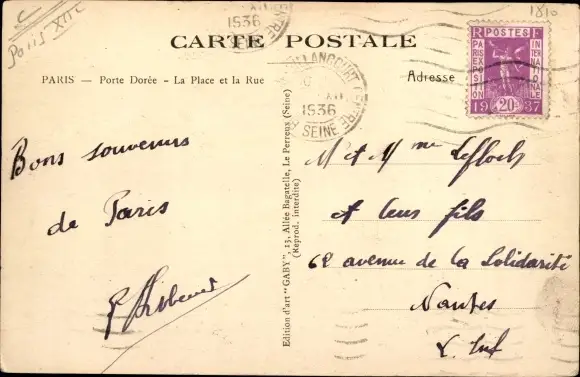 1810
Paris XII
1936
CARTE POSTALE
PARIS — Porte Dorée - La Place et la Rue
Adresse
BILLANCOURT CENTRE
1936
SEINE
RF
POSTES
PARIS EXPOSITION INTERNATIONALE
19 20 37
Bons souvenirs
de Paris
Edition d'art "GABY", 15, Allée Bagatelle, Le Perreux (Seine)
(Reprod. interdite)
M et Mme Lefloch
et leurs fils
62 avenue de la Solidarité
Nantes
L. Inf